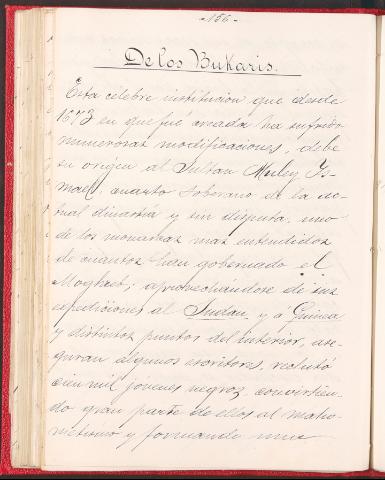 -156-
De los Bukaris.
Esta célebre institucion que desde
1673 en que fué creada ha sufrido
numerosas modificaciones, debe
su origen al Sultan Muley Is-
mael, cuarto soberano de la ac-
tual dinastia y sin disputa, uno
de los monarcas mas entendidos
de cuantos han gobernado el
Moghreb; aprovechandose de sus
espediciones al Sudan, y a Guinea
y distintos puntos del interior, ase-
guran algunos escritores, reclutó
cien mil jovenes negros, convirtien-
do gran parte de ellos al maho-
metismo y formando una